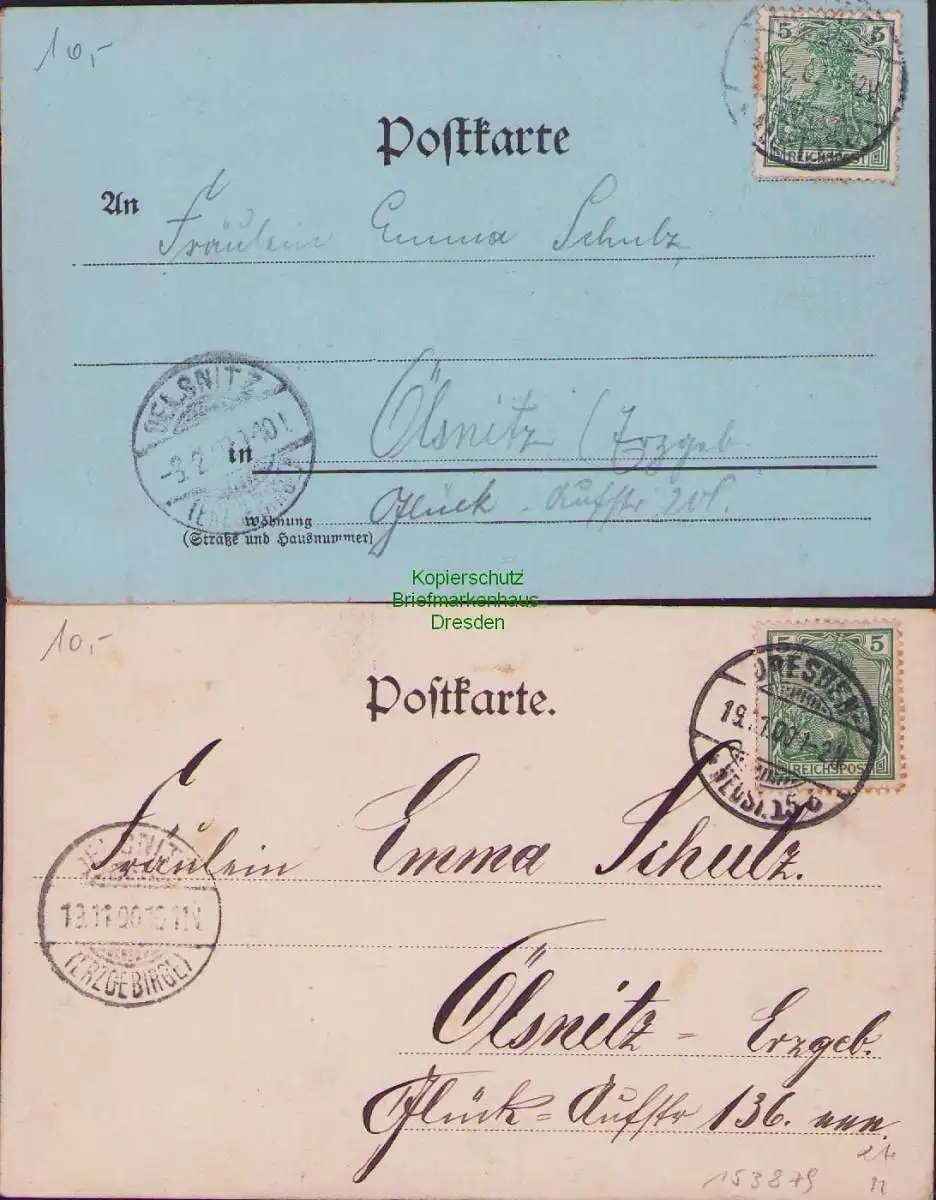 10,-
5 5
REICHSPOST
Postkarte
An Fräulein Emma Schulz
OELSNITZ
-3.2. 10
(ERZGEBIRGE)
in Ölsnitz (Erzgeb.
Wohnung Glück-Aufstr
(Straße und Hausnummer)
Kopierschutz
Briefmarkenhaus
Dresden
10,-
5 5
REICHSPOST
DRESDEN-
19.11.00 1-2N
NEUST. 15 b
Postkarte.
Fräulein Emma Schulz.
OELSNITZ
19.11.00 10-11N.
(ERZGEBIRGE)
Ölsnitz - Erzgeb.
Glück-Aufstr 136.
153879